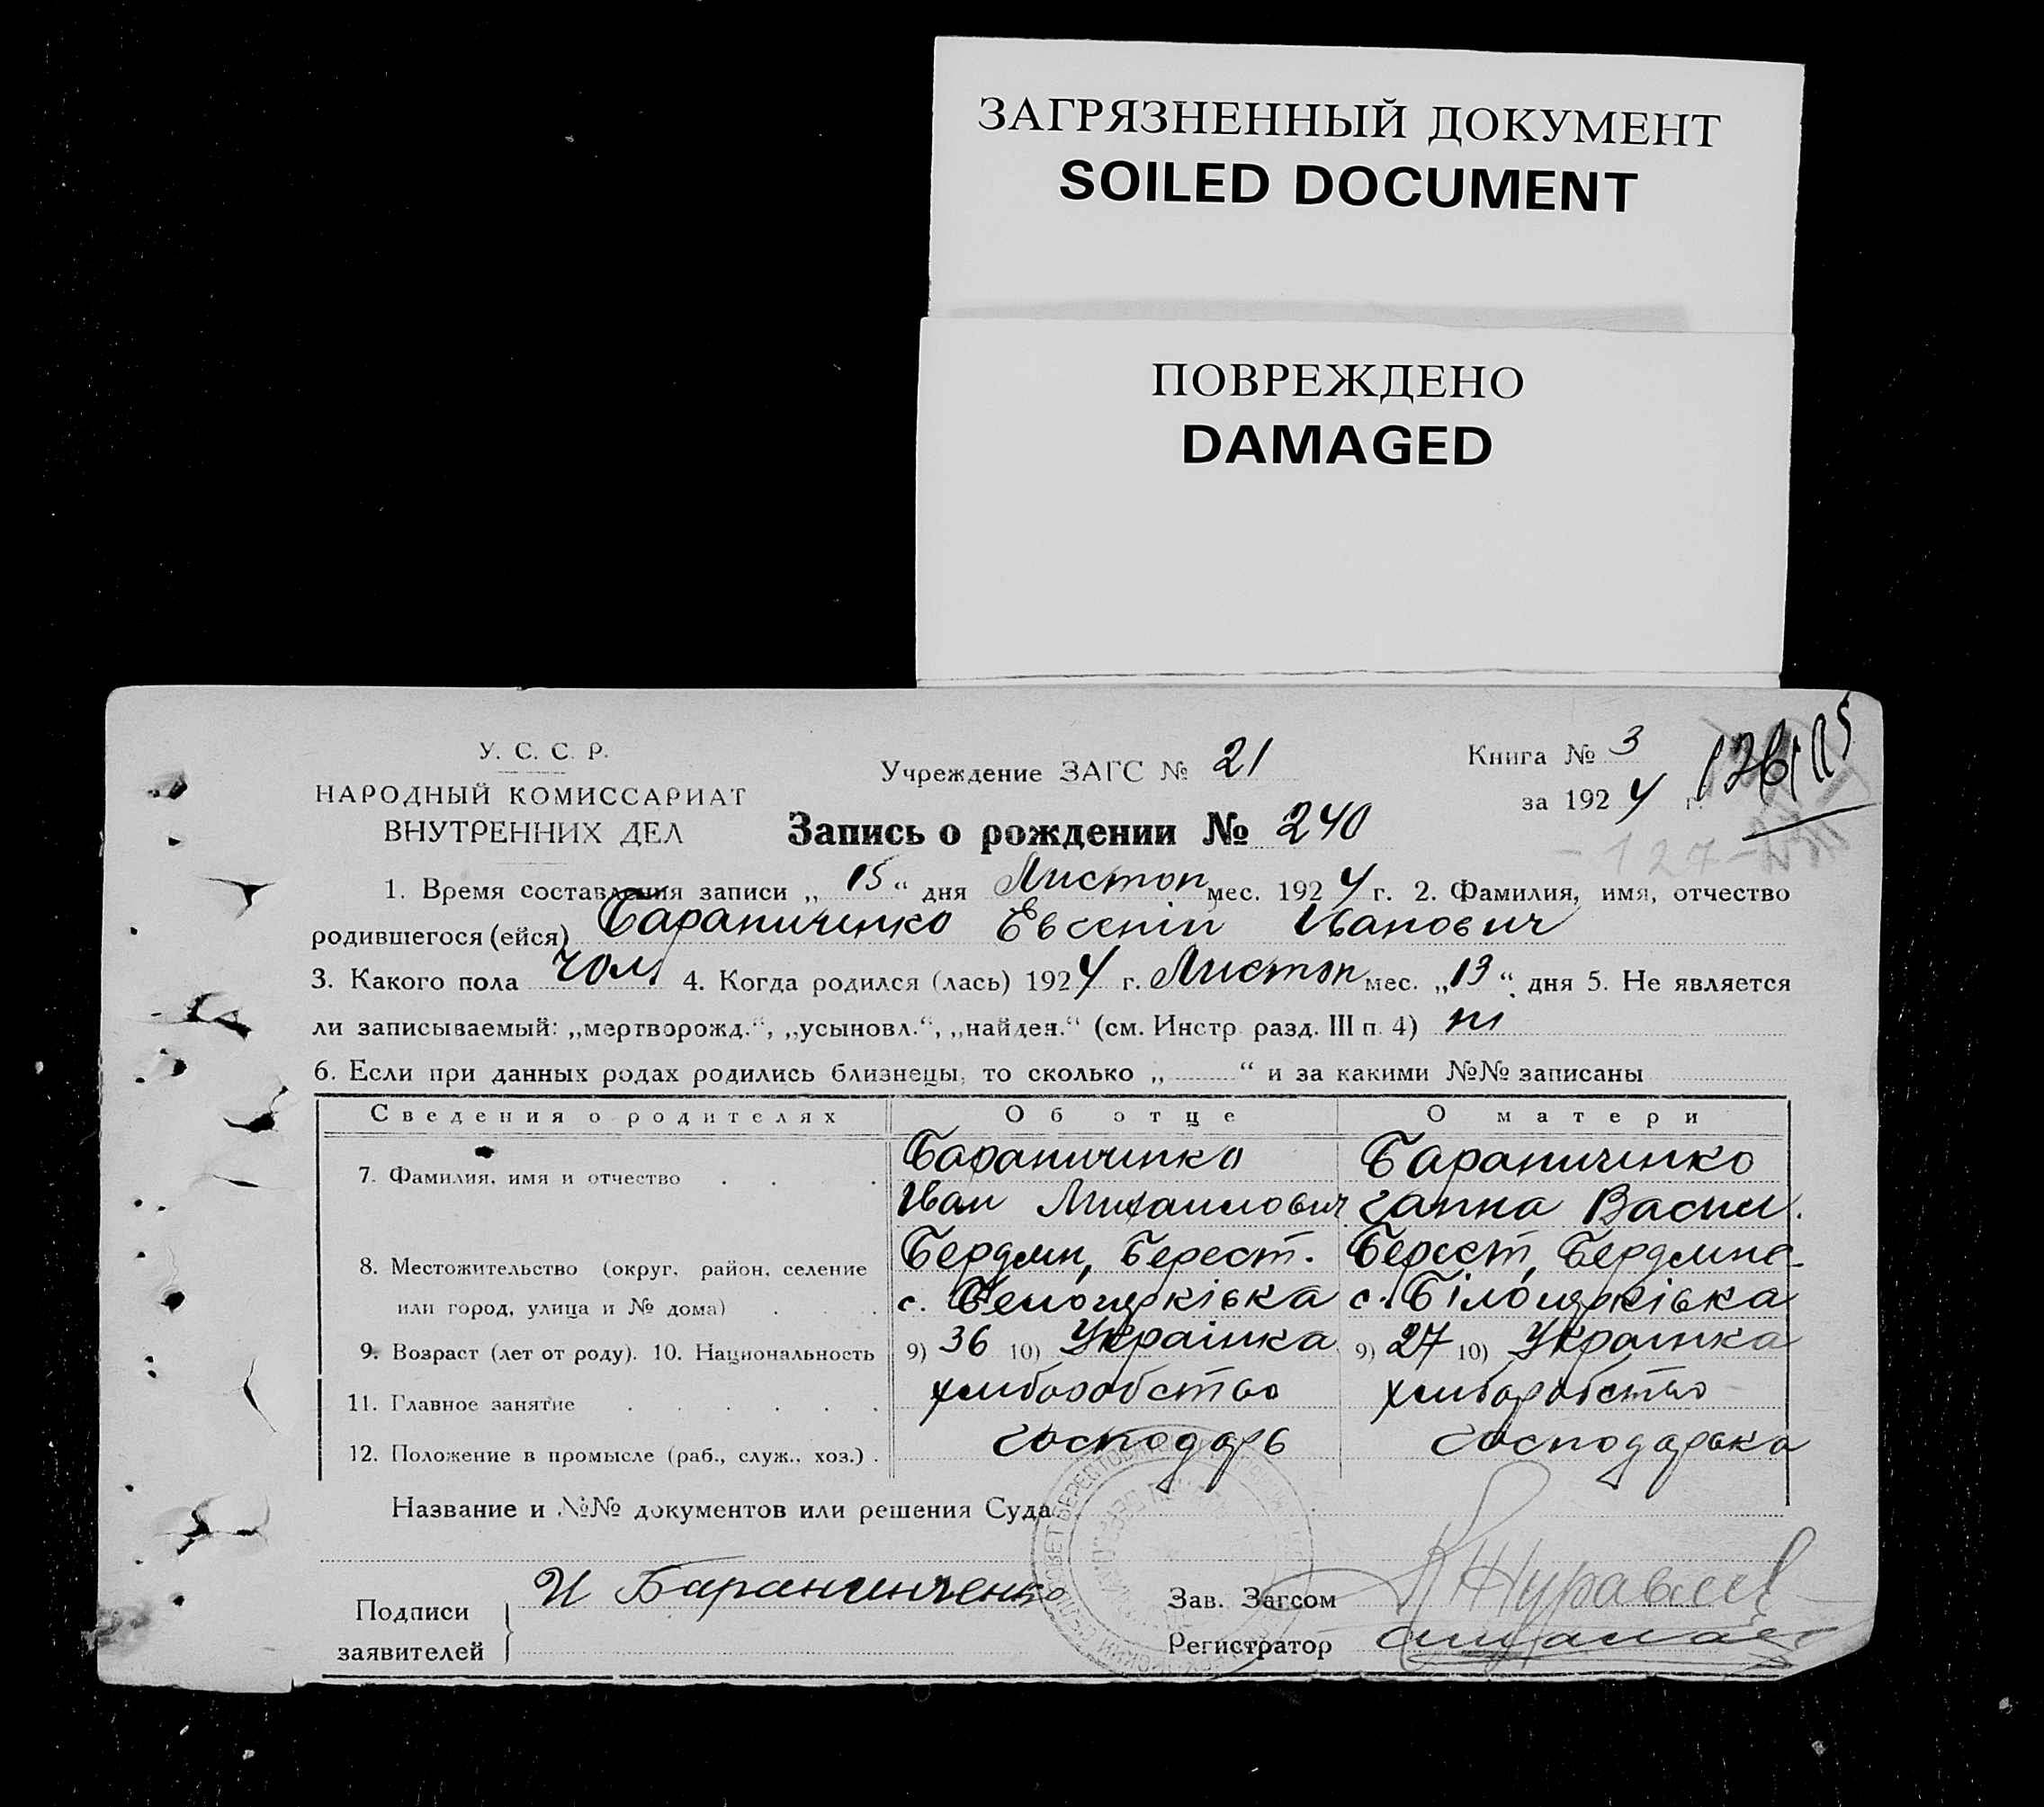 ЗАГРЯЗНЕННЫЙ ДОКУМЕНТ
SOILED DOCUMENT
ПОВРЕЖДЕНО
DAMAGED
У. С. С. Р.
НАРОДНЫЙ КОМИССАРИАТ
ВНУТРЕННИХ ДЕЛ
Учреждение ЗАГС № 21
Книга № 3
за 1924 г.
Запись о рождении № 240
- 127 -
1. Время составления записи „ 15 “ дня Листоп мес. 1924 г. 2. Фамилия, имя, отчество
родившегося (ейся) Бараниченко Евгеній Иванович
3. Какого пола чол. 4. Когда родился (лась) 1924 г. Листоп мес. „13“ дня 5. Не является
ли записываемый: „мертворожд.“, „усыновл.“, „найден.“ (см. Инстр. разд. III п. 4) ні
6. Если при данных родах родились близнецы, то сколько „ “ и за какими №№ записаны
Сведения о родителях Об отце О матери
7. Фамилия, имя и отчество Бараниченко Бараниченко
Иван Михаилович Ганна Васил.
8. Местожительство (округ, район, селение Бердян, Берест. Берест, Бердянс
или город, улица и № дома) с. Белоцерківка с. Білоцерківка
9. Возраст (лет от роду). 10. Национальность 9) 36 10) Украінка 9) 27 10) Украінка
11. Главное занятие хлиборобство хлиборобство
12. Положение в промысле (раб., служ., хоз.) господарь господарька
Название и №№ документов или решения Суда
Подписи
заявителей
И Баранинченко
Зав. Загсом Журавлев
Регистратор